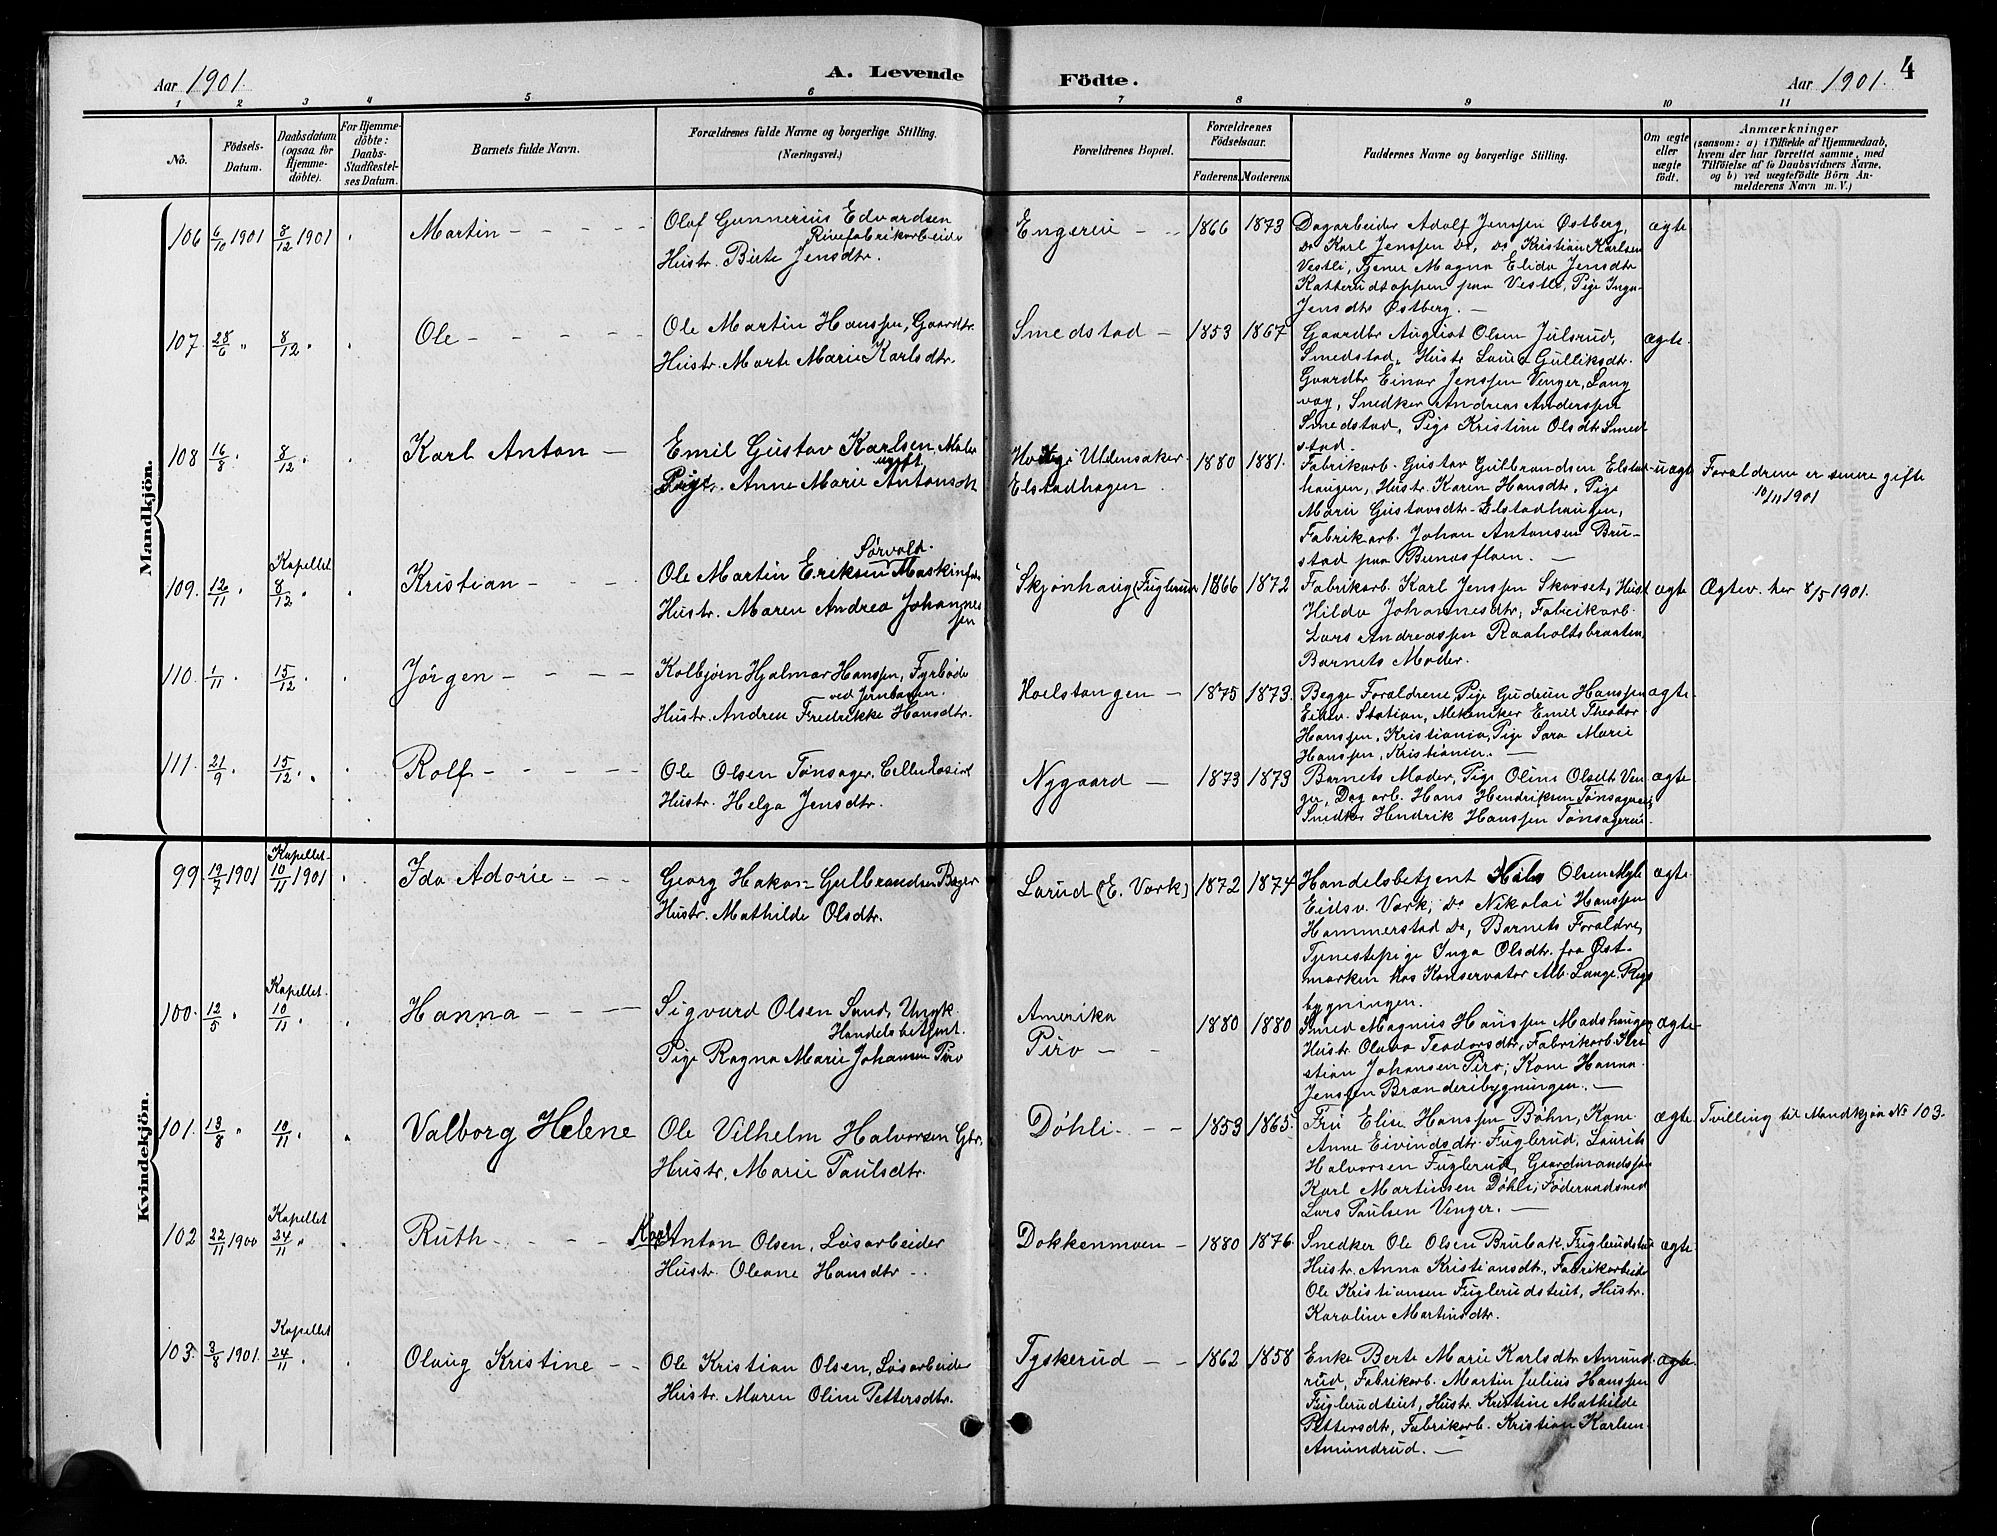 4
Aar 1901.
A. Levende
Födte.
Aar 1901.
1 2 3 4 5 6 7 8 9 10 11
No.
Födsels-
Datum.
Daabsdatum
(ogsaa for
Hjemme-
döbte).
For Hjemme-
döbte:
Daabs-
Stadfæstel-
ses Datum.
Barnets fulde Navn.
Forældrenes fulde Navne og borgerlige Stilling.
(Næringsvei.)
Forældrenes Bopæl.
Forældrenes
Födselsaar.
Faderens. Moderens.
Faddernes Navne og borgerlige Stilling.
Om ægte
eller
uægte
födt.
Anmærkninger
(saasom: a) i Tilfælde af Hjemmedaab,
hvem der har forrettet samme, med
Tilföielse af to Daabsvidners Navne,
og b) ved uægtefödte Börn An-
melderens Navn m. V.)
Mandkjön.
106 6/10 1901 8/12 1901 Martin
Olaf Gunnerius Edvardsen
Hustr. Birte Jensdtr.
1866 1873
Dagarbeider Adolf Jenssen Østberg,
Do Karl Jenssen Do, Do Kristian Karlsen
Vestli, Tjener Magna Elida Jensdtr
Katterudtoppen paa Vestli, Pige Inga
Jensdtr Østberg.
ægte
107 28/6 " 8/12 " Ole
Ole Martin Hanssen, Gaardbr.
Hustr. Marte Marie Karlsdtr.
Smedstad 1853 1867
Gaardbr August Olsen Julsrud,
Smedstad, Hustr Laura Gulliksdtr.
Gaardbr Einar Jenssen Venger, Lang
vag, Snedker Andreas Anderssen
Smedstad, Pige Kristine Olsdtr Smed
stad.
ægte.
108 16/8 8/12 Karl Anton
Emil Gustav Karlsen, Maler
ugift
Pige. Anne Marie Antonsdtr
Ullensaker
Elstadhagen
1880 1881.
Fabrikarb. Gustav Gulbrandsen Elstad
haugen, Hustr. Karen Hansdtr, Pige
Marie Gustavsdtr Elstadhaugen,
Fabrikarb. Johan Antonsen Bru-
stad paa Bunæsfloen.
uægte
Forældrene er senere gifte
10/11 1901
109. 12/11 " Kapellet 8/12 " Kristian
Sørvold.
Ole Martin Eriksen Maskinfab
Hustr. Maren Andrea Johannes
sen
Skjønhaug (Fuglerud 1866 1872
Fabrikarb. Karl Jenssen Skavset, Hust
Hilda Johannesdtr, Fabrikarb.
Lars Andreassen Raaholtsbraaten,
Barnets Moder.
ægte
Ægtev. her 8/5 1901.
110. 1/11 15/12 Jørgen
Kolbjørn Hjalmar Hanssen, Fyrbøder
ved Jernbanen.
Hustr. Andrea Fredrikke Hansdtr.
Hoelstangen 1875 1873.
Begge Forældrene, Pige Gudrun Hanssen
Eidsv. Station, Mekeniker Emil Theodor
Hanssen, Kristiania, Pige Sara Marie
Hanssen, Kristiania.
ægte
111. 21/9 15/12 Rolf
Ole Olsen Tønsager, Cellulosearb
Hustr. Helga Jensdtr.
Nygaard 1873 1873
Barnets Moder, Pige Oline Olsdtr Ven
ger, Dagarb. Hans Hendriksen Tønsageree,
Snedker Hendrik Hanssen Tønsagerei.
ægte
Kvindekjön.
99 19/7 1901 Kapellet 10/11 1901 Ida Adorie
Georg Hakon Gulbrandsen Bager
Hustr. Mathilde Olsdtr.
Larud (E. Værk) 1872 1874
Handelsbetjent Olsen Myhr
Eidsv. Værk, Do Nikolai Hanssen
Hammerstad Do, Barnets Forældre,
Tjenestepige Inga Olsdtr. fra Øst-
marken hos Konservator Alb. Lange Rigs
bygningen.
ægte
100. 12/5 Kapellet 10/11 Hanna
Sigvard Olsen Sand, Ungk.
Handelsbetjent.
Pige Ragna Marie Johansen Piro
Amerika
Piro
1880 1880
Smed Magnus Hanssen Madshaugen
Hustr Olava Teodorsdtr, Fabrikarb. Kri
stian Johansen Piro, Kone Hanna
Jenssen Brænderibygningen.
ægte
101. 13/8 " 10/11 Valborg Helene
Ole Vilhelm Halvorsen Gbr.
Hustr. Marie Paulsdtr.
Døhli 1853 1865.
Fru Elise Hanssen Bøhn, Kone
Anne Eivindsdtr. Fuglerud, Laurits
Halvorsen Fuglerud, Gaardmandssøn
Karl Martinsen Døhli, Føderaadsmd
Lars Paulsen Venger.
ægte
Tvilling til Mandkjøn No 103.
102 22/11 1900 Kapellet 24/11 " Ruth
Karl Anton Olsen, Løsarbeider
Hustr. Oleane Hansdtr
Dokkenmoen 1880 1876.
Snedker Ole Olsen Brubak, Fuglerudstei
Hustr. Anna Kristiansdtr, Fabrikarbeider
Ole Kristiansen Fuglerudsteiet, Hustr.
Karoline Martinsdtr.
ægte
103. 3/8 1901. Kapellet 24/11 Olaug Kristine
Ole Kristian Olsen, Løsarbeider
Hustr. Maren Oline Pettersdtr.
Tyskerud 1862 1858
Enke Berte Marie Karlsdtr Amund
rud, Fabrikarb. Martin Julius Hanssen
Fuglerudteiet, Hustr Kristine Mathilde
Pettersdtr, Fabrikarb. Kristian Karlsen
Amundrud.
ægte